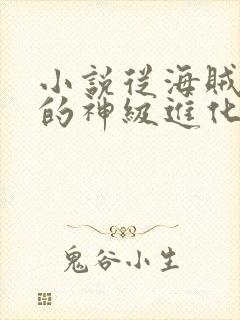 小説從海賊
的神級進化
鬼谷小生